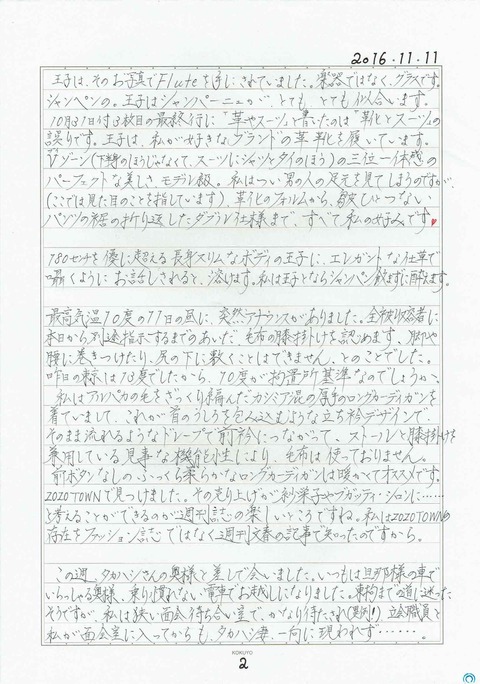 2016.11.11
王子は、そのお写真でFluteを手にされていました。楽器ではなく、グラスです。
シャンペンの。王子はシャンパーニュが、とても、とても似合います。
10月31日付3枚目の最終行に"革やスーツ"と書いたのは"靴とスーツ"の
誤りです。王子は、私が好きなブランドの革靴を履いています。
Vゾーン(下半身のほうじゃなくて、スーツにシャツとタイのほう)の三位一体感の
パーフェクトな美しさ、モデル級。私はつい男の人の足元を見てしまうのですが、
(ここでは見た目のことを指しています)、革靴のフォルムから、皺ひとつない
パンツの裾の折り返したダブル仕様まで、すべて私の好みです♥
180センチを優に超える長身スリムなボディの王子に、エレガントな仕草で
囁くようにお話しされると、溶けます。私は王子とならシャンペン飲まずに酔えます。
最高気温10度の11日の昼に、突然アナウンスがありました。全被収容者に
本日から別途指示するまでのあいだ、毛布の膝掛けを認めます、肩や
腰に巻きつけたり、尻の下に敷くことはできません、とのことでした。
昨日の東京は13度でしたから、10度が拘置所基準なのでしょうか。
私はアルパカの毛をざっくり編んだカシミア混の厚手のロングカーディガンを
着ていまして、これが首のうしろを包み込むような立ち衿デザインで、
そのまま流れるようなドレープで前衿につながって、ストールと膝掛けを
兼用している見事な機能性により、毛布は使っておりません。
前ボタンなしの、ふっくら柔らかなロングカーディガンは暖かくてオススメです。
ZOZOTOWNで見つけました。その売り上げが紗栄子やブガッティ・シロンに……
と考えることができるのが週刊誌の楽しいところですね。私はZOZOTOWNの
存在をファッション誌でではなく週刊文春の記事で知ったのですから。
この週、タカハシさんの奥様と差しで会いました。いつもは旦那様の車で
いらっしゃる奥様、乗り慣れない電車でお越しになりました。東拘までの道に迷った
そうですが、私は狭い面会待ち合い室で、かなり待たされ(異例!)立会職員と
私が面会室に入ってからも、タカハシ妻、一向に現われず……。
KOKUYO
2